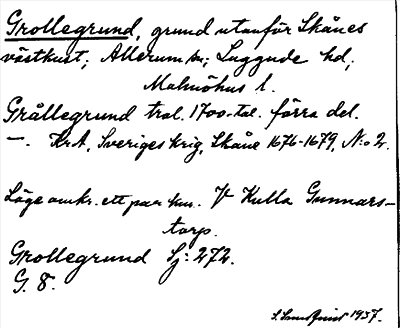 Grollegrund, grund utanför Skånes
västkust; Allerum sn; Luggude hd,
Malmöhus l.
Grållegrund trol. 1700-tal. förra del.
—. KrA, Sveriges krig, Skåne 1676-1679, N:o 2.
Läge omkr. ett par km. V Kulla Gunnars-
torp.
Grollegrund Sj: 272.
G. 8.
1937.